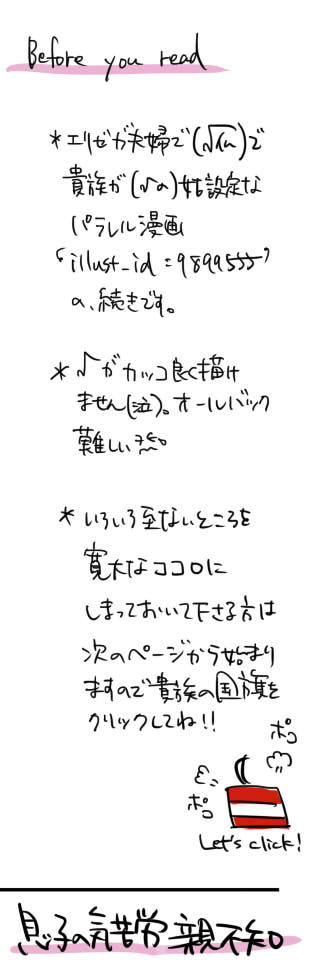 Before you read
*エリゼが夫婦で(√仏)で
貴族が(√の)姑設定な
パラレル漫画
'illust_id=9899555'
の、続きです。
*√がカッコ良く描け
ません(泣)。オールバック
難しい…。
*いろいろ至ないところを
寛大なココロに
しまっておいて下さる方は
次のページから始まり
ますので貴族の国旗を
クリックしてね!!
ポコ
ポコ
Let's click!
息子の気苦労親不知